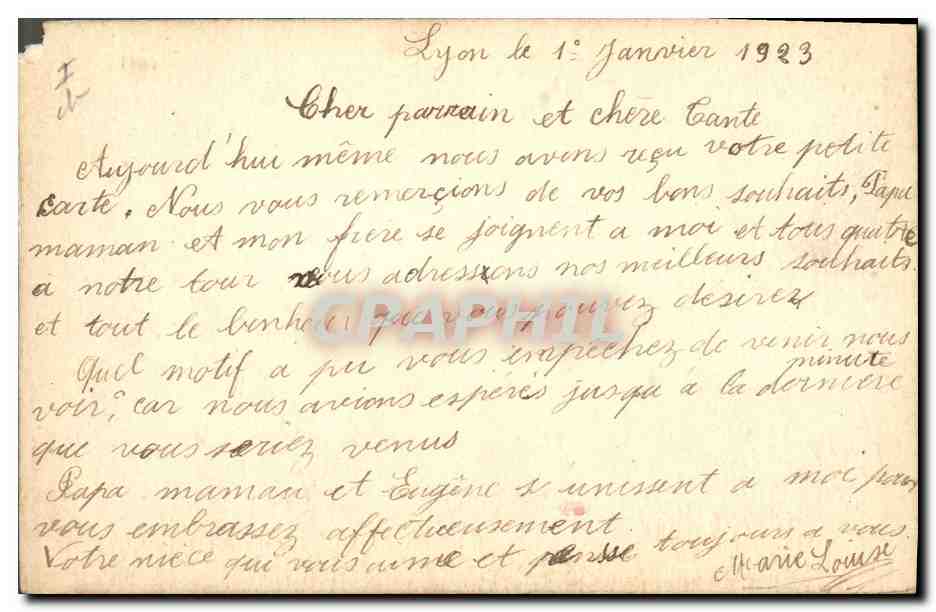 Lyon le 1° Janvier 1923
Cher parrain et chère Tante
Aujourd'hui même nous avons reçu votre petite
carte. Nous vous remerçions de vos bons souhaits, Papa
maman et mon frère se joignent a moi et tous quatre
a notre tour vous adressons nos meilleurs souhaits
et tout le bonheur que vous pouvez désirez
CPAPHIL
Quel motif a pu vous empêchez de venir nous
voir? car nous avions espérés jusqu'à la dernière
minute
que vous seriez venus
Papa maman et Eugène s'unissent a moi pour
vous embrassez affectueusement.
Votre nièce qui vous aime et pense toujours a vous.
Marie Louise